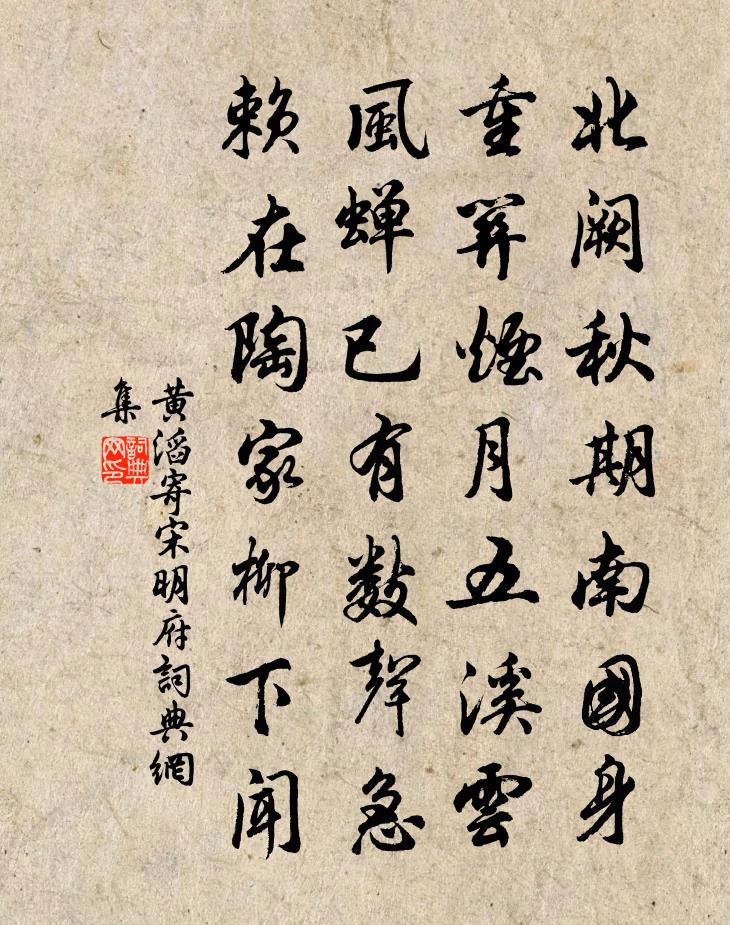 北闕秋期南國身
重關煙月五溪雲
風蟬已有數聲急
賴在陶家柳下聞
黃滔寄宋明府詞典網
集
詞典
网印